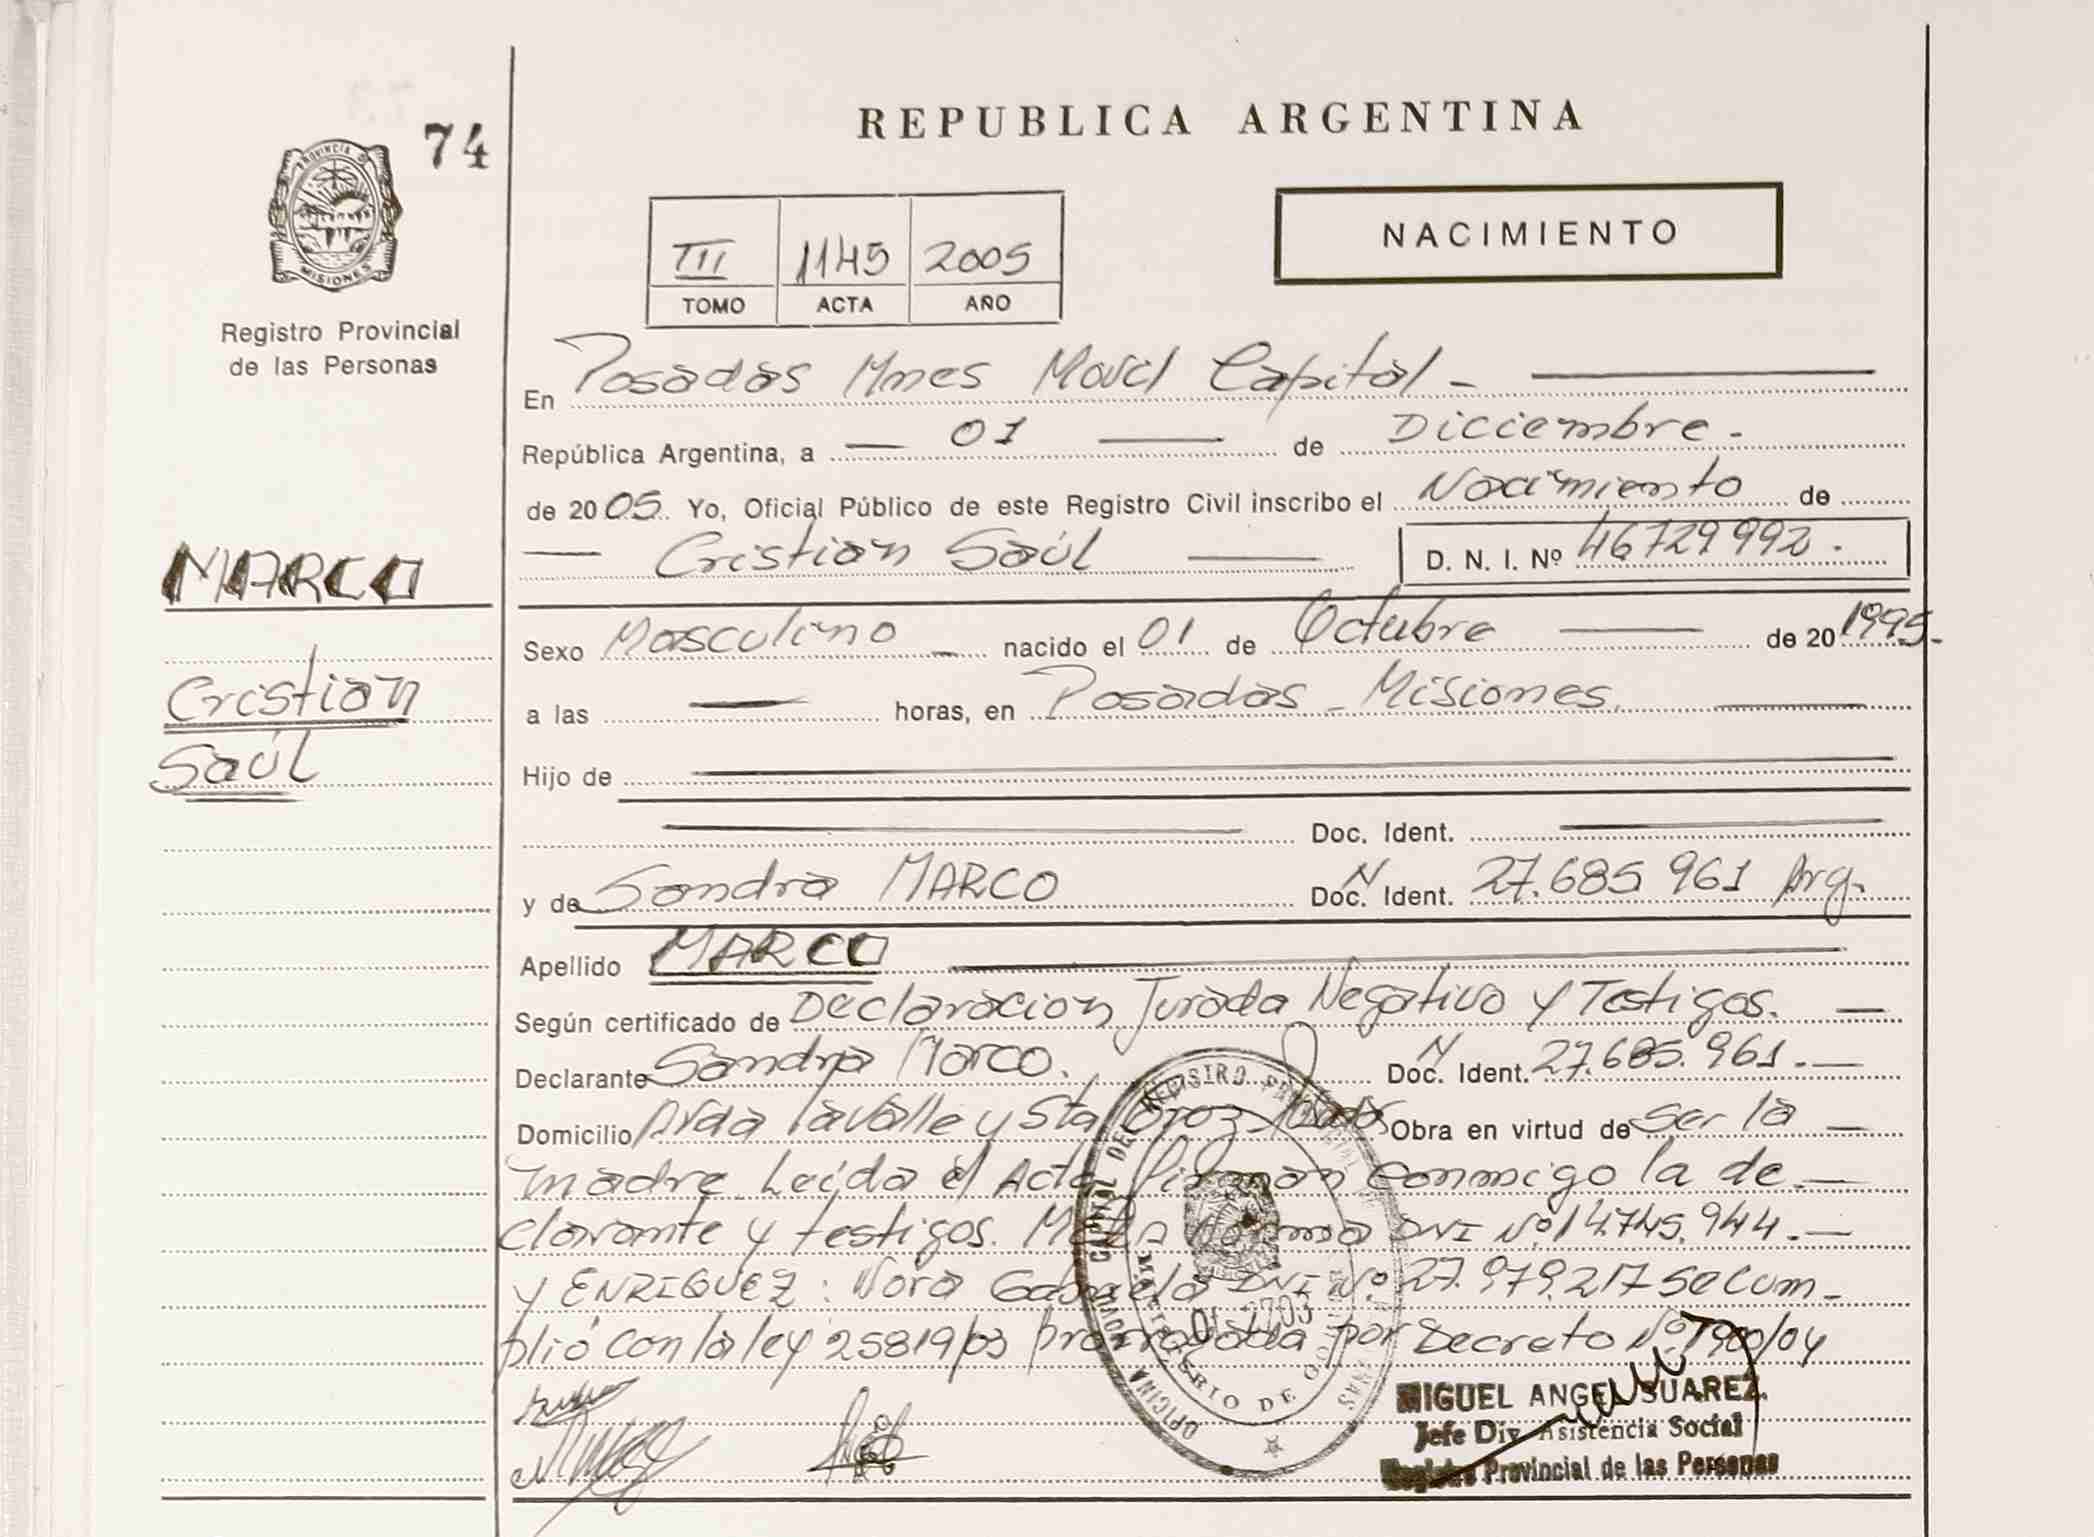 74
PROVINCIA D
MISIONES
Registro Provincial
de las Personas
REPUBLICA ARGENTINA
III 1145 2005
TOMO ACTA AÑO
NACIMIENTO
En Posadas Mnes Movil Capital -
República Argentina, a 01 de Diciembre.
de 2005. Yo, Oficial Público de este Registro Civil inscribo el Nacimiento de
Cristian Saúl D. N. I. Nº 46729992.
MARCO
Cristian
Saúl
Sexo Masculino nacido el 01 de Octubre de 20 1995.
a las horas, en Posadas - Misiones.
Hijo de
Doc. Ident.
y de Sandra MARCO Doc. N Ident. 27.685 961 Arg.
Apellido MARCO
Según certificado de Declaracion Jurada Negativo y Testigos.
Declarante Sandra Marco. Doc. N Ident. 27.685.961.
Domicilio Avda Lavalle y Sta Obra en virtud de ser la
madre Leída el Acta firman conmigo la de
clarante y testigos. DNI Nº 14745.944.
y ENRIQUEZ: Nora Gabriela DNI Nº 27.979.217 se cum-
plió con la ley 25819/03 prorrogada por Decreto Nº 1900/04
OFICINA MOVIL CAPITAL DEL REGISTRO PROVINCIAL DE
MINISTERIO DE GOBIERNO
MIGUEL ANGEL SUAREZ
Jefe Div. Asistencia Social
Registro Provincial de las Personas